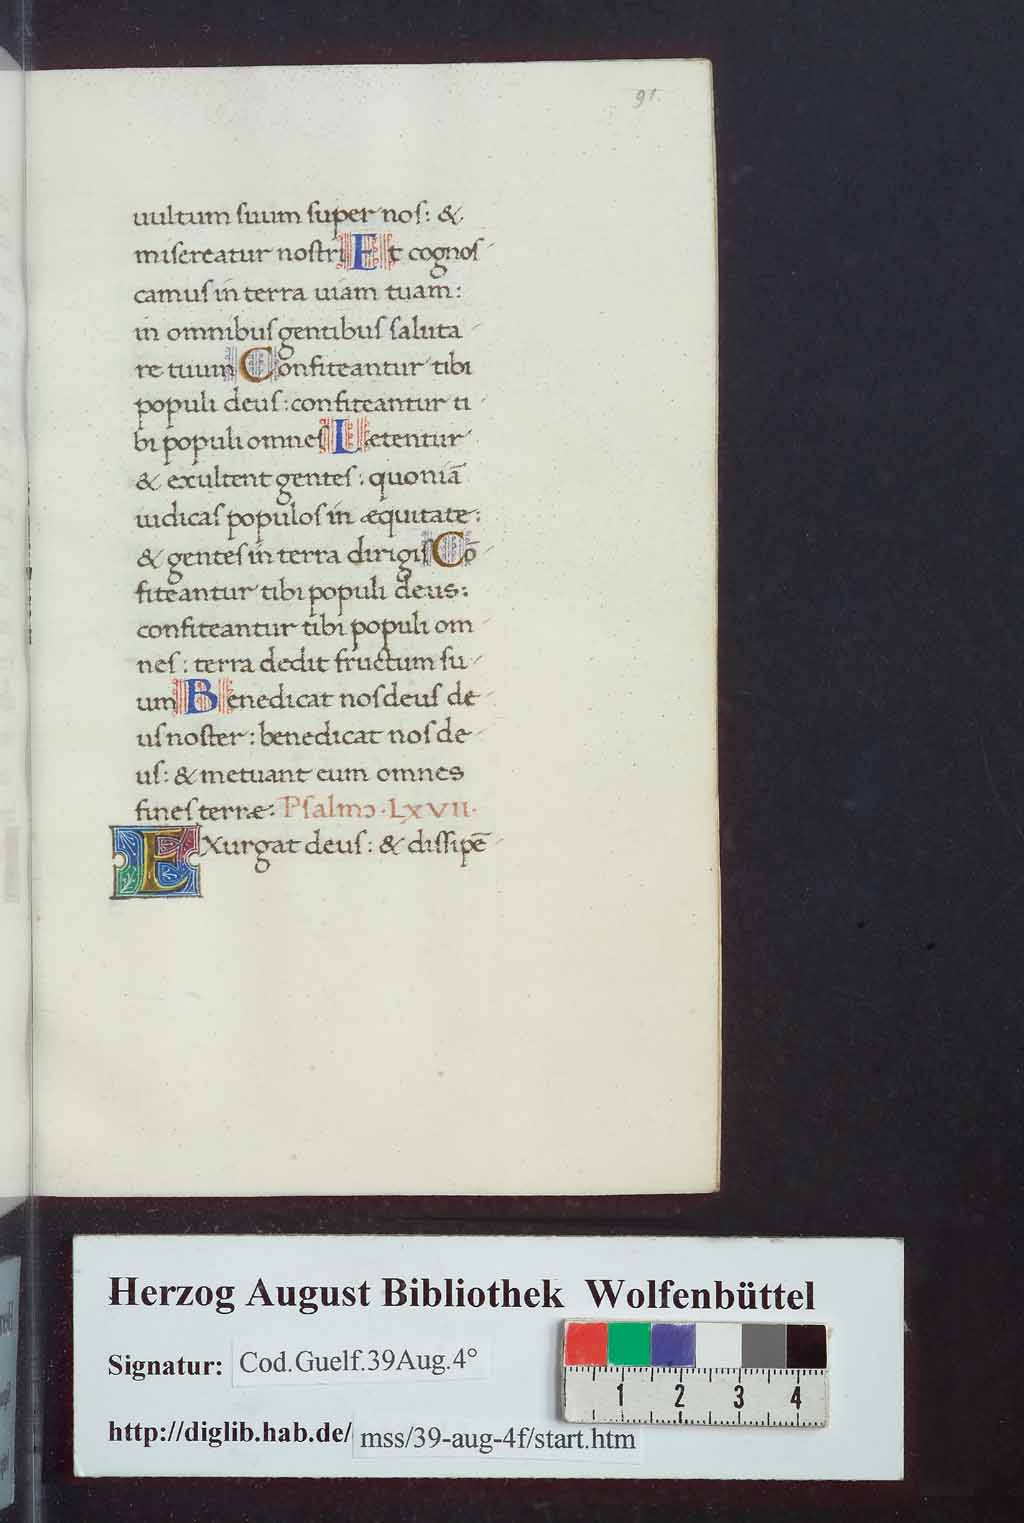 91.
uultum suum super nos: &
misereatur nostri Et cognos
camus in terra uiam tuam:
in omnibus gentibus saluta
re tuum Confiteantur tibi
populi deus: confiteantur ti
bi populi omnes Letentur
& exultent gentes: quoniā
iudicas populos in æquitate:
& gentes in terra dirigis Cō
fiteantur tibi populi deus:
confiteantur tibi populi om
nes: terra dedit fructum su
um Benedicat nos deus de
us noster: benedicat nos de
us: & metuant eum omnes
fines terræ. Psalmo .LXVII.
EXurgat deus: & dissipē
Herzog August Bibliothek Wolfenbüttel
Signatur: Cod.Guelf.39Aug.4°
1 2 3 4
http://diglib.hab.de/ mss/39-aug-4f/start.htm